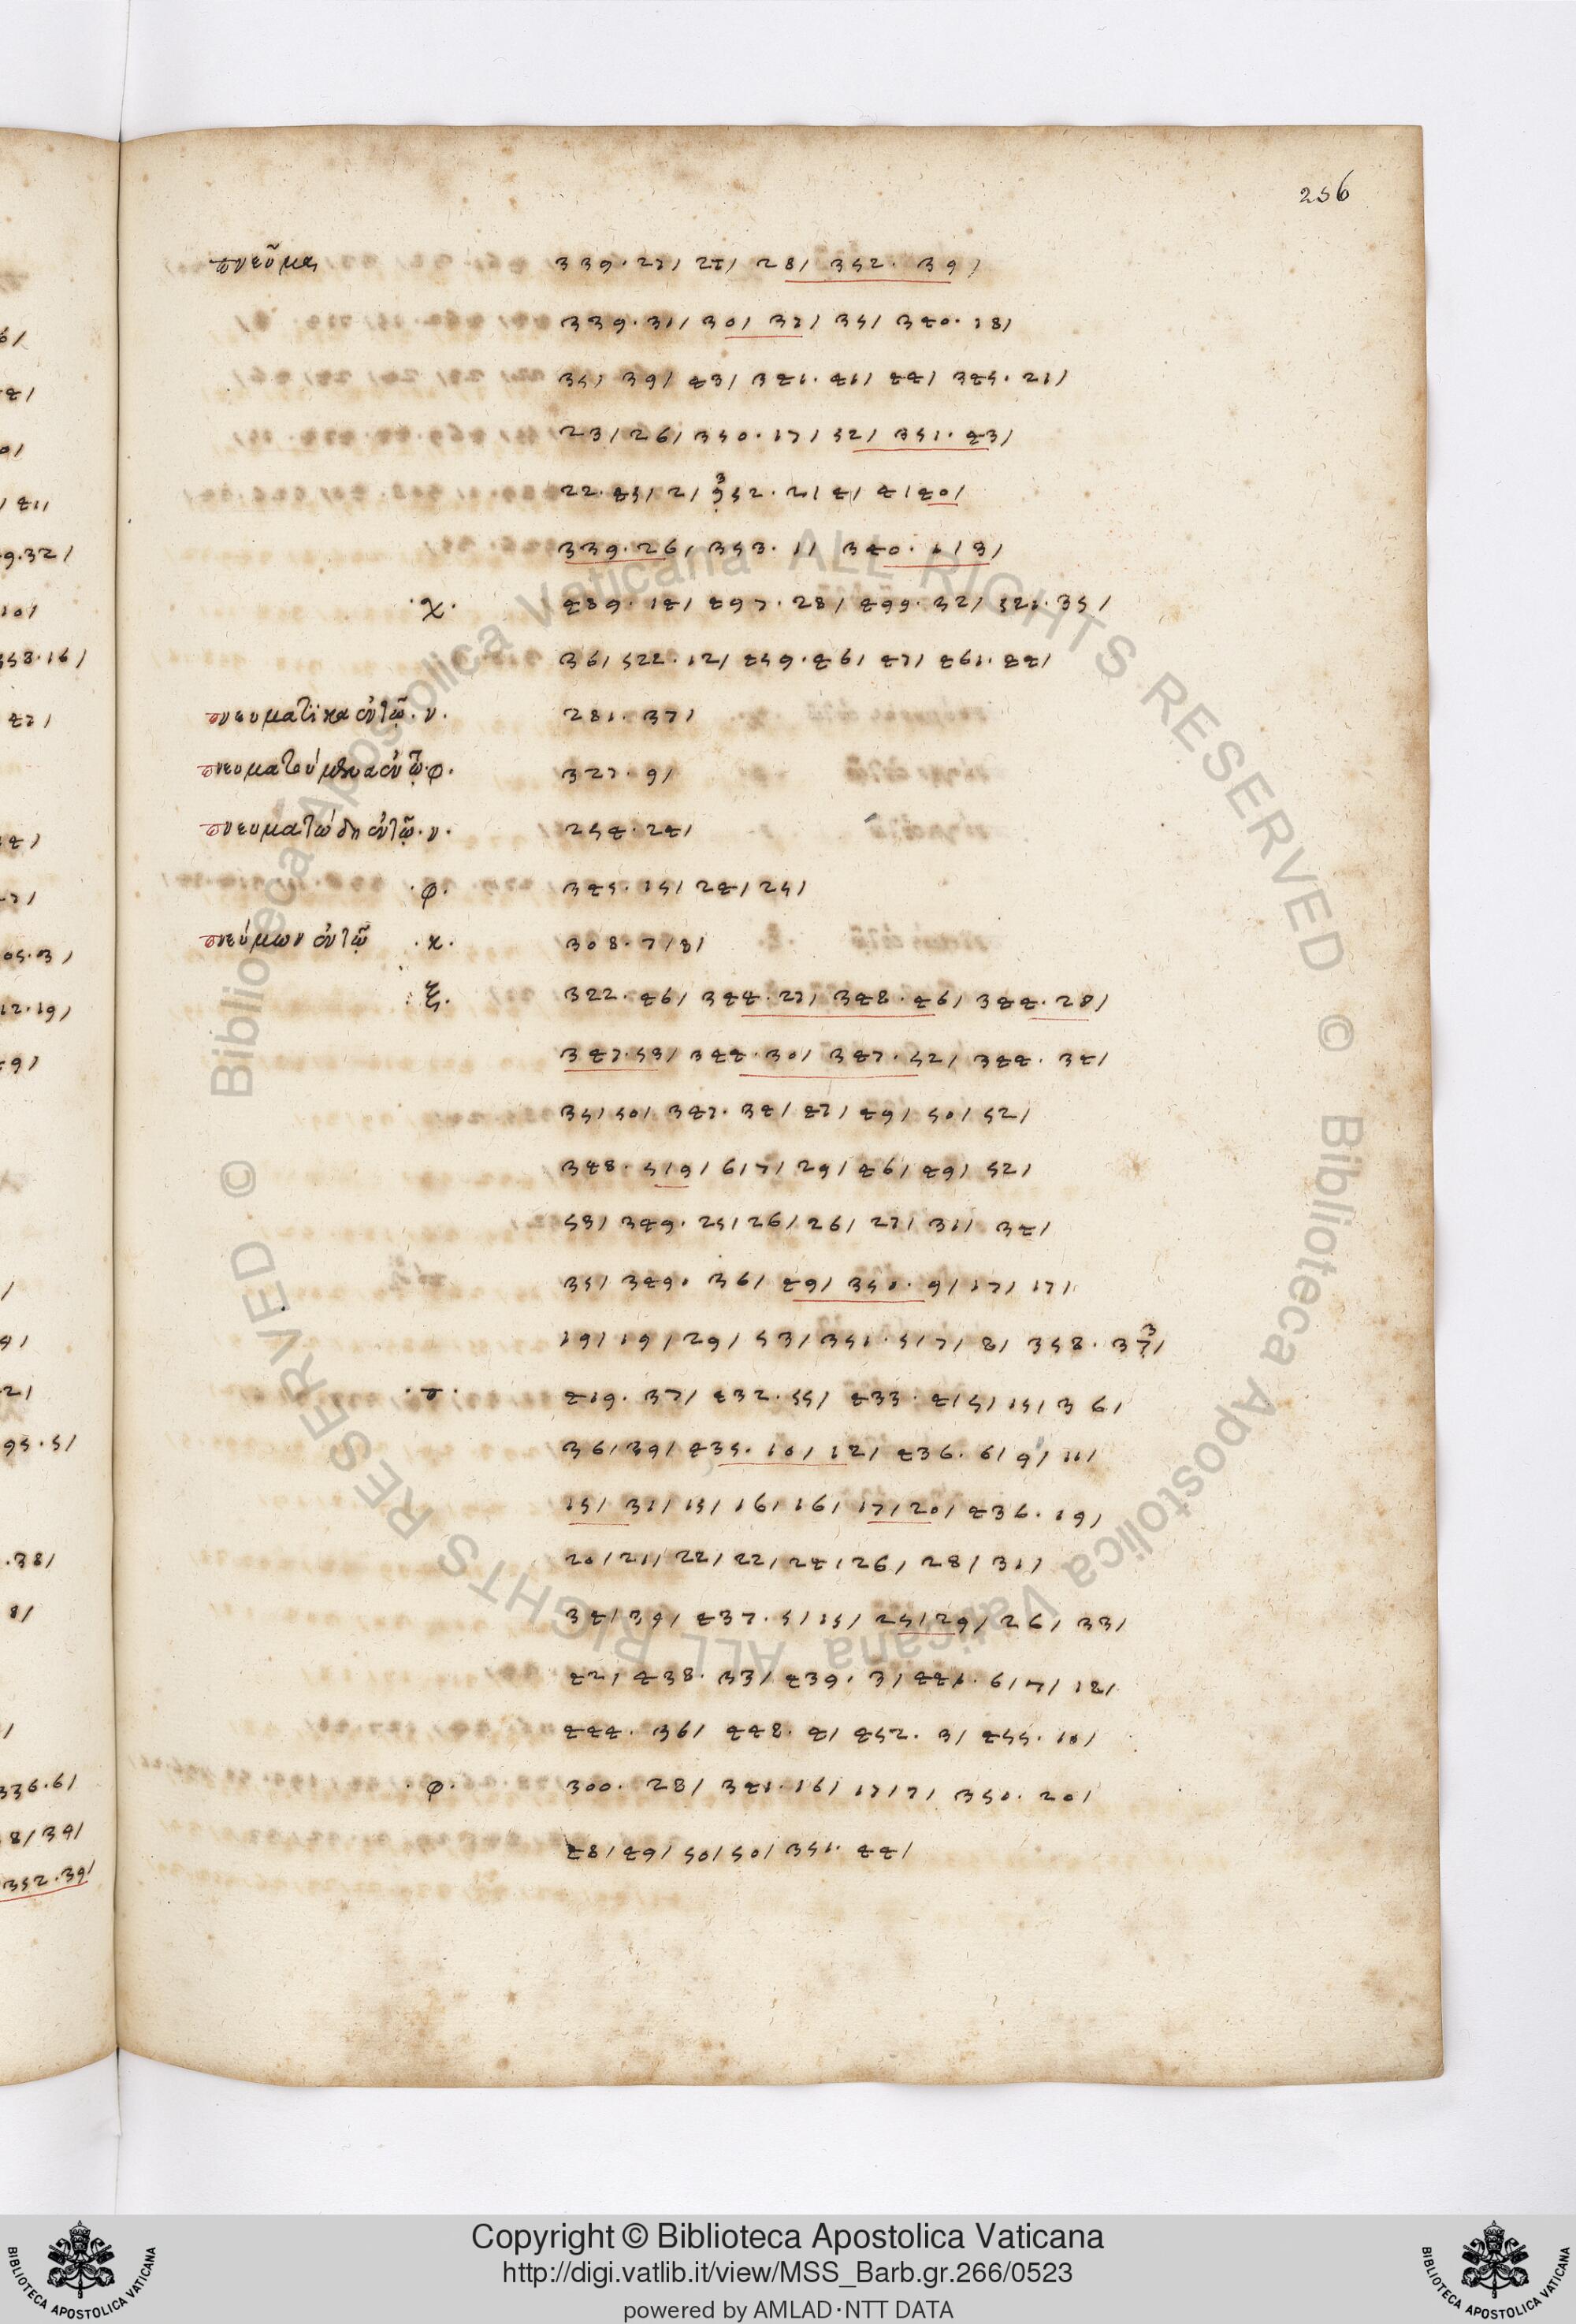 256
πνεῦμα 339 · 27/ 24/ 28/ 352 · 39/
339 · 31/ 30/ 37/ 35/ 340 · 18/
35/ 39/ 43/ 341 · 41/ 44/ 345 · 21/
23/ 26/ 350 · 17/ 52/ 351 · 43/
22 · 45/ 2/ 352 · 2/ 4/ 4/ 40/
339 · 26/ 353 · 1/ 340 · 1/ 3/
· χ · 489 · 14/ 497 · 28/ 499 · 32/ 521 · 35/
36/ 522 · 12/ 459 · 46/ 47/ 461 · 44/
πνευματικα ἐν τῷ · ν · 281 · 37/
327 · 9/
πνευματώδη ἐν τῷ · ν · 254 · 24/
· φ · 345 · 15/ 24/ 25/
πνεύμων ἐν τῷ · κ · 308 · 7/ 8/
· ξ · 322 · 46/ 344 · 27/ 348 · 46/ 344 · 28/
347 · 53/ 344 · 30/ 347 · 52/ 344 · 34/
35/ 50/ 347 · 34/ 47/ 49/ 50/ 52/
348 · 5/ 9/ 6/ 7/ 29/ 46/ 49/ 52/
53/ 349 · 25/ 26/ 26/ 27/ 31/ 34/
35/ 349 · 36/ 49/ 350 · 9/ 17/ 17/
19/ 19/ 29/ 53/ 351 · 5/ 7/ 8/ 358 · 37/
· σ · 419 · 37/ 432 · 55/ 433 · 4/ 5/ 15/ 36/
36/ 39/ 435 · 10/ 12/ 436 · 6/ 9/ 11/
15/ 31/ 15/ 16/ 16/ 17/ 20/ 436 · 19/
20/ 21/ 22/ 22/ 24/ 26/ 28/ 31/
34/ 39/ 437 · 5/ 15/ 25/ 29/ 26/ 33/
42/ 438 · 33/ 439 · 3/ 441 · 6/ 7/ 18/
444 · 36/ 448 · 4/ 452 · 3/ 455 · 10/
· φ · 300 · 28/ 341 · 16/ 17/ 7/ 350 · 20/
48/ 49/ 50/ 50/ 351 · 44/
Copyright © Biblioteca Apostolica Vaticana
http://digi.vatlib.it/view/MSS_Barb.gr.266/0523
powered by AMLAD·NTT DATA
BIBLIOTECA APOSTOLICA VATICANA
BIBLIOTECA APOSTOLICA VATICANA
© Biblioteca Apostolica Vaticana ALL RIGHTS RESERVED
© Biblioteca Apostolica Vaticana ALL RIGHTS RESERVED